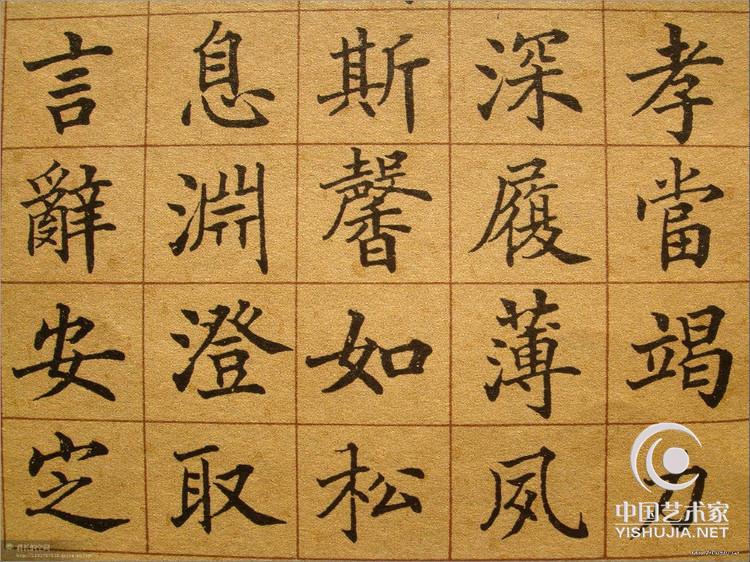 孝當竭力
深履薄夙
斯馨如松
息淵澄取
言辭安定
中国艺术家
YISHUJIA.NET